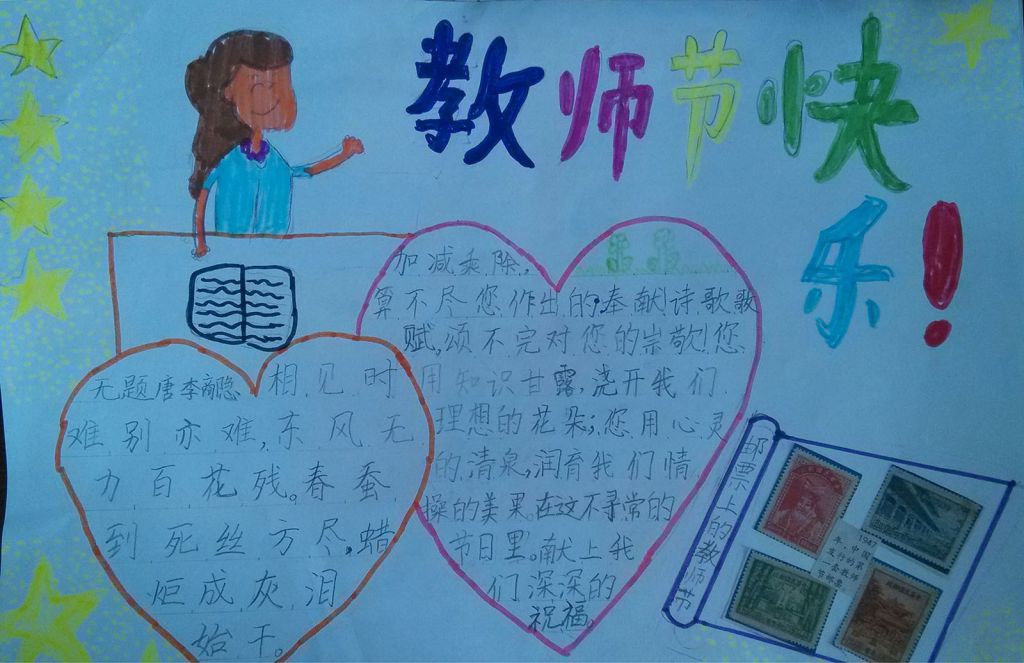 教师节快
乐!
加减乘除,
算不尽您作出的奉献!诗歌歌
赋,颂不完对您的崇敬!您
用知识甘露,浇开我们
理想的花朵;您用心灵
的清泉,润育我们情
操的美果。在这不寻常的
节日里。献上我
们深深的
祝福。
无题唐李商隐 相见时
难别亦难,东风无
力百花残。春蚕
到死丝方尽,蜡
炬成灰泪
始干。
邮票上的教师节
1947
年,中国
发行的第
一套教师
节邮票